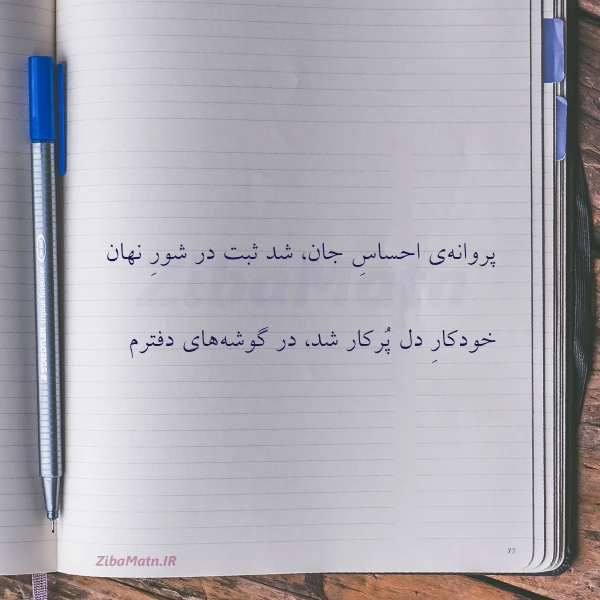 پروانه‌ی احساسِ جان، شد ثبت در شورِ نهان
خودکارِ دل پُرکار شد، در گوشه‌های دفترم
ZibaMatn.IR